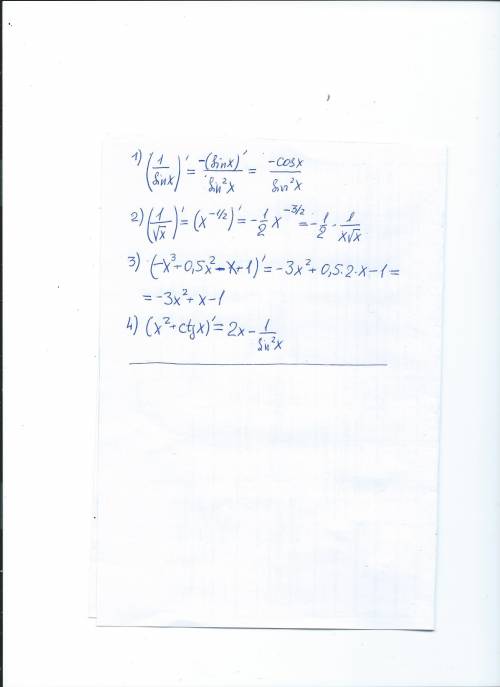 1) (1/sinx)' = -(sinx)'/sin²x = -cosx/sin²x
2) (1/√x)' = (x^-1/2)' = -1/2 x^-3/2 = -1/2 · 1/x√x
3) (-x³+0,5x²-x+1)' = -3x²+0,5·2·x-1=
= -3x²+x-1
4) (x²+ctgx)' = 2x - 1/sin²x